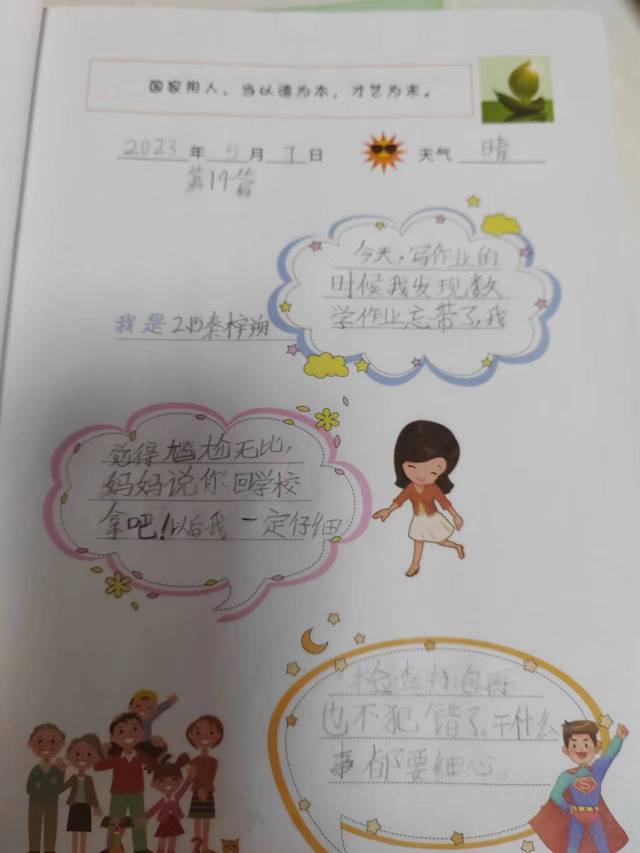 国家用人，当以德为本，才艺为末。
2023年5月7日 天气 晴
第19篇
今天，写作业的
时候我发现数
学作业忘带了，我
我是 215秦梓
觉得尴尬无比，
妈妈说你回学校
拿吧！以后我一定仔细
检查 包
也不犯错了。干什么
事都要细心。